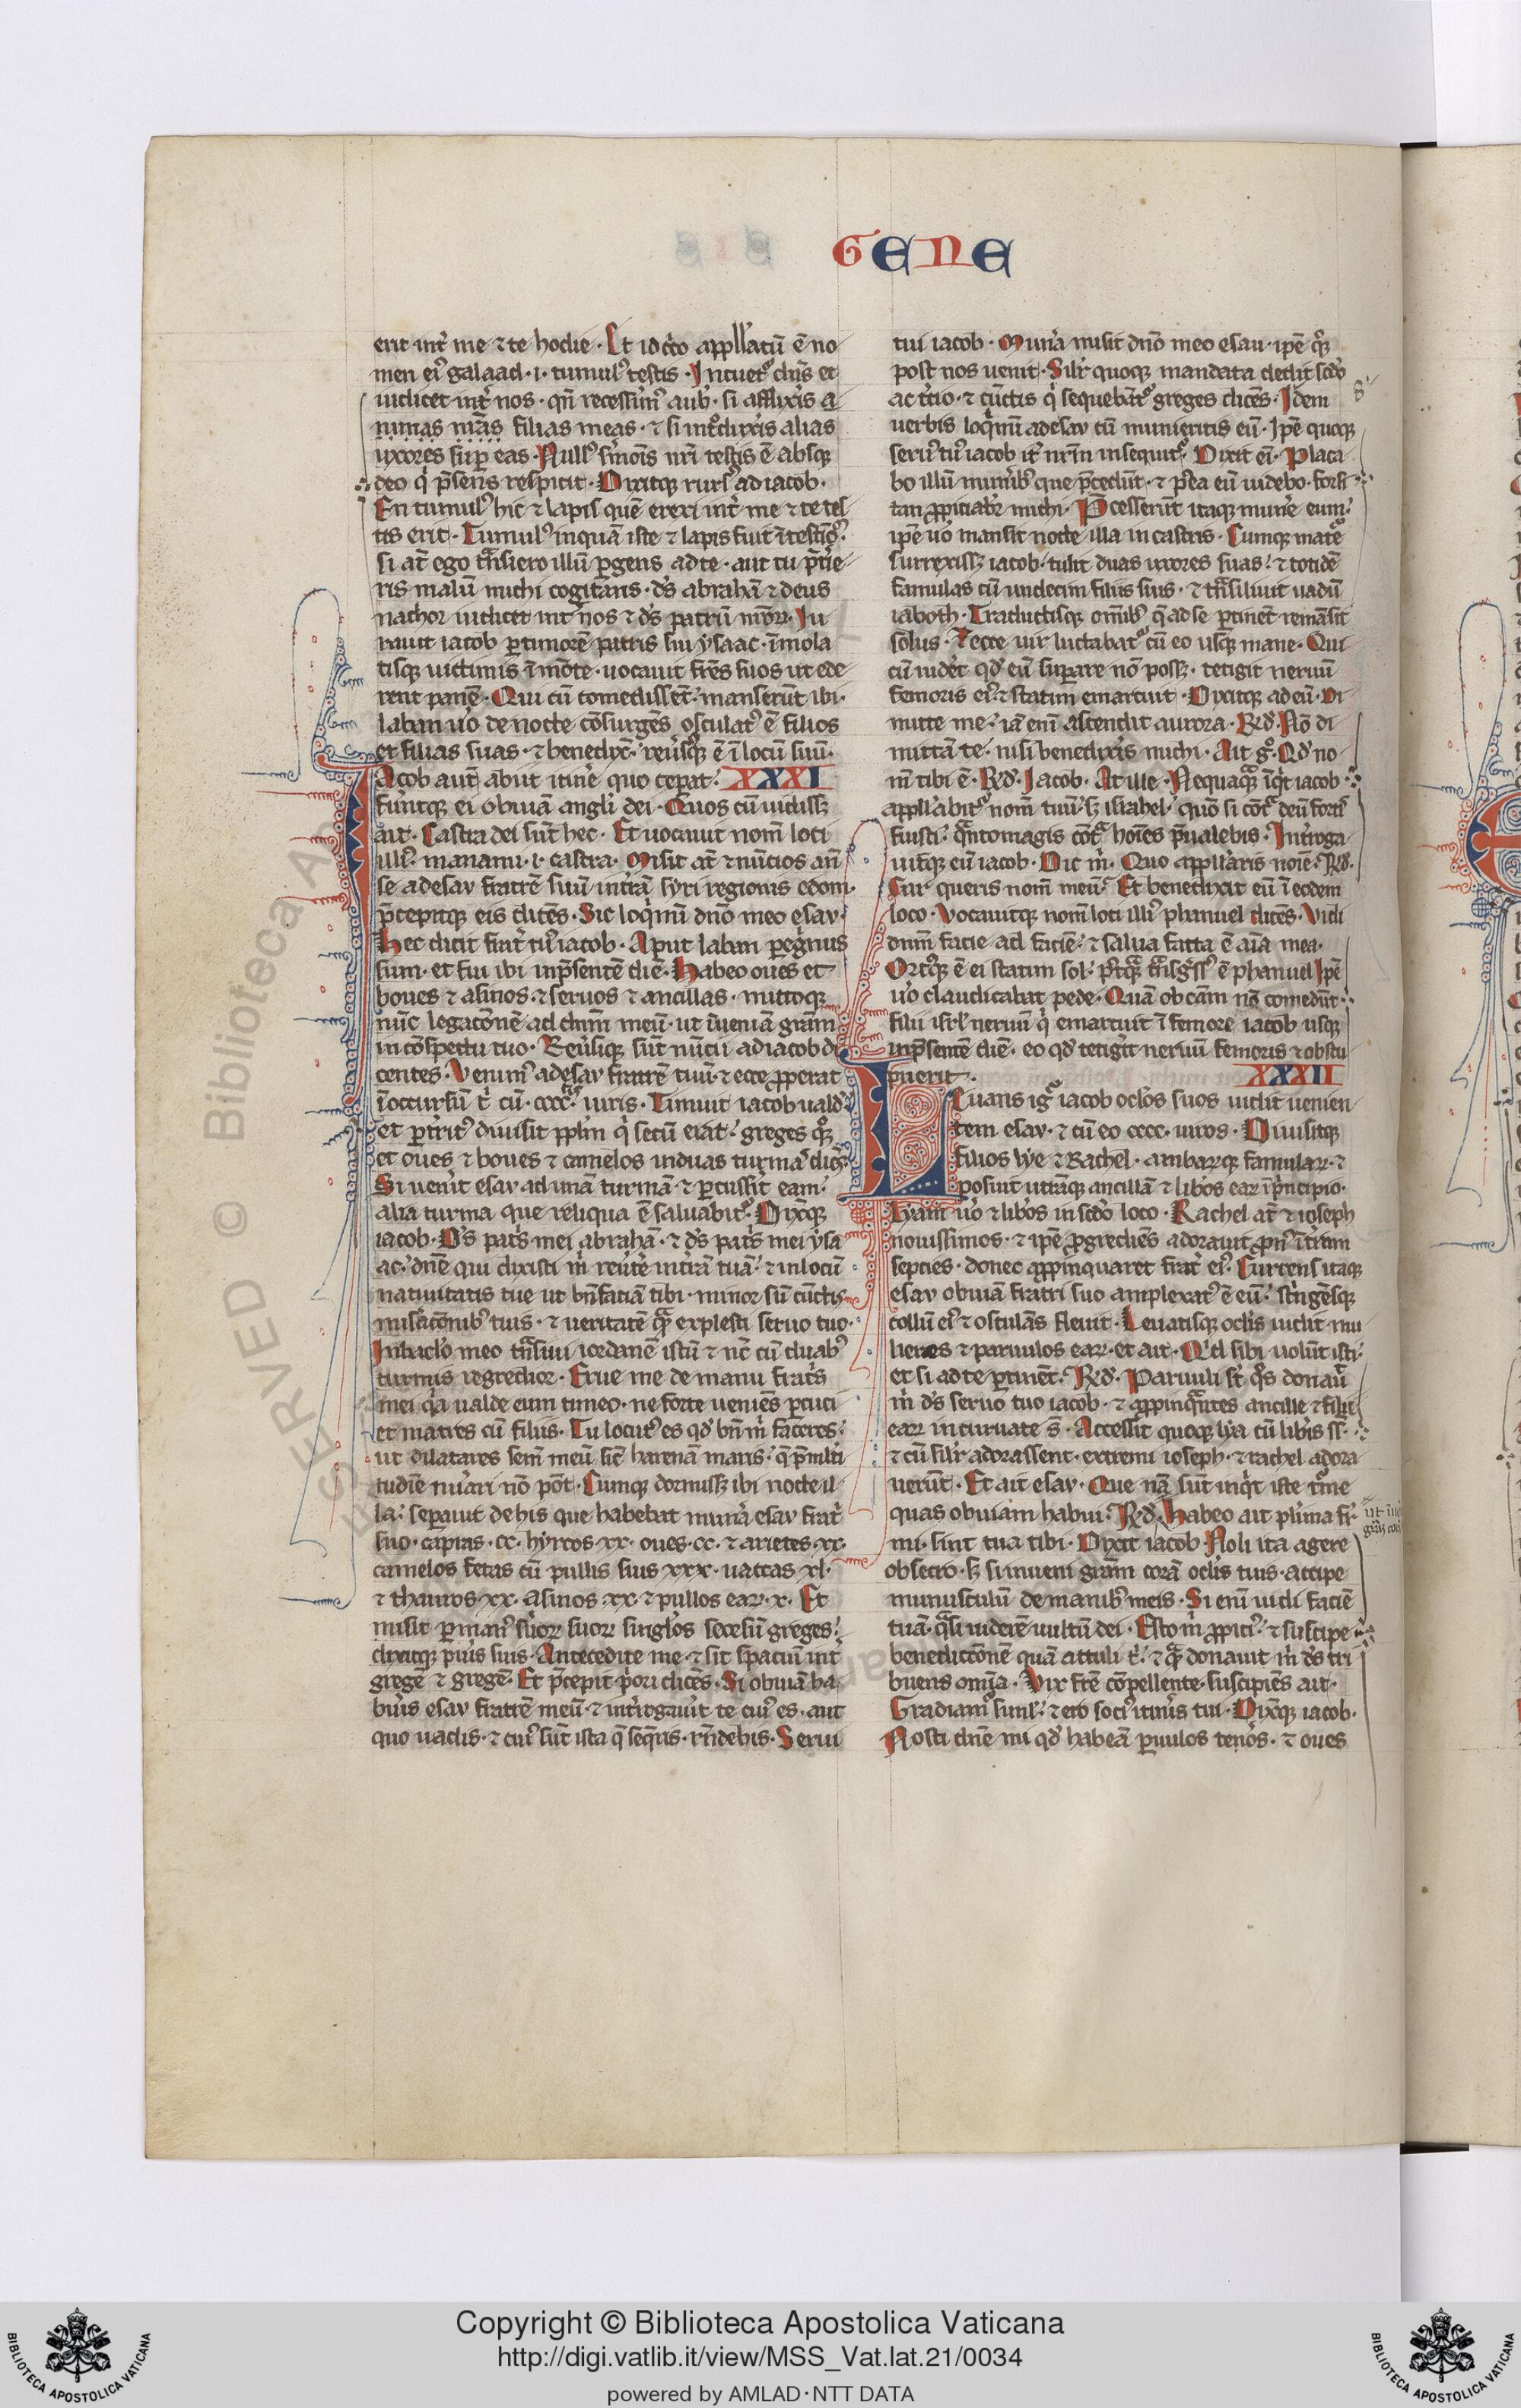 GENE
erit int᷑ me ⁊ te hodie . Et idc̓co appll̓atū ē no
men ei᷒ galaad .i. tumul᷒ testis . Intuet᷑ dn̄s et
iudicet int᷑ nos . qn̄ recesserim᷒ a nob̓ . si afflixe̓is a
nimas nr̄as filias meas . ⁊ si int̓dux̓is alias
uxores sup̱ eas . Null᷒ s̓mois nr̄i testis ē absq̨
deo q̓ p̄sens respicit . Dixitq̨ rurs᷒ ad iacob .
En tumul᷒ hic ⁊ lapis quē erexi int᷑ me ⁊ te tes
tis erit . Tumul᷒ inquā iste ⁊ lapis sint ī testīo᷒ .
si at̄ ego tn̄siero illū ꝑgens ad te . aut tu p̄t̓ie
ris malū michi cogitans . ds̄ abrahā ⁊ deus
nachor iudicet int᷑ nos ⁊ ds̄ patrū nr̄oꝝ . Iu
rauit iacob ꝑ timorē patris sui ysaac . īmola
tisq̨ uictimis ī mōte . uocauit fr̄es suos ut ede
rent panē . Qui cū comedissēt . manserūt ibi .
laban uo̓ de nocte cōsurgēs osculat᷒ ē filios
et filias suas . ⁊ benedix̄ . reu̓sq̨ ē ī locū suū .
Iacob aūt abiit itin̓e quo cep̱at . XXXI
fuer̄tq̨ ei obuiā angl̓i dei . Quos cū uidissꝫ
ait . Castra dei sūt hec . Et uocauit nom̄ loci
illi᷒ . manaim .i. castra . Misit at̄ ⁊ nūcios an̄
se ad esau fratrē suū in t̓rā syri regionis edom .
p̄cepitq̨ eis dicēs . Sic loq̓mī dn̄o meo esau .
Hec dicit frat̓ tu᷒ iacob . Aput laban ꝑeg̓nus
sum . et fui ibi in p̄sentē diē . Habeo oues et
boues ⁊ asinos . ⁊ seruos ⁊ ancillas . mittoq̨
nūc legacōnē ad dnm̄ meū . ut īueniā grām
in cōspectu tuo . Reu̓siq̨ sūt nūcii ad iacob di
centes . Venim᷒ ad esau fratrē tuū . ⁊ ecce ꝓperat
ī occursū t̓ cū . cccc . uiris . Timuit iacob uald̓ .
et ꝑt̓rit᷒ diuisit pplm̄ q̓ secū erat . greges q̨
et oues ⁊ boues ⁊ camelos in duas turmas dicēs .
Si uen̓it esau ad unā turmā ⁊ ꝑcuss̓it eam .
alia turma que reliqua ē saluabit᷑ . Dixitq̨
iacob . Ds̄ pat̓s mei abrahā . ⁊ ds̄ pat̓s mei ysa
ac . dn̄e qui dixisti m̓ reu̓te̓ in t̓rā tuā . ⁊ in locū
natiuitatis tue ut bn̄faciā tibi . minor sū cūctis
mis̓acōnib᷒ tuis . ⁊ ueritatē quā explesti seruo tuo .
In baclo̓ meo tn̄siui iordanē istū ⁊ nc̄ cū duab᷒
turmis regredior . Erue me de manu frat̓s
mei q̓a ualde eum timeo . ne forte ueniēs ꝑcuci
et matres cū filiis . Tu locut᷒ es qd̓ bn̄ m̓ fac̓eres .
ut dilatares sem̄ meū sic̄ harenā maris . q̄ p̄ ml̓ti
tudīe nu̓ari nō pōt . Cumq̨ dormissꝫ ibi nocte il
la . separauit de his que habebat mun̓a esau frat̓
suo . capras . cc . hyrcos xx . oues . cc . ⁊ arietes . xx .
camelos fetas cū pullis suis xxx . uaccas xl .
⁊ thauros xx . asinos xx . ⁊ pullos eaꝝ . x . Et
misit ꝑ man᷒ s̓uoꝝ suoꝝ singlo̓s seorsū greges .
dixitq̨ pu̓is suis . Antecedite me . ⁊ sit spaciū int᷑
gregē ⁊ gregē . Et p̄cepit p̓ori dicēs . Si obuiā ha
bu̓is esau fratrē meū . ⁊ int᷑rogau̓it te cui᷒ es . aut
quo uadis . ⁊ cui᷒ sūt ista q̄ seq̓ris . rn̄debis . Serui
tui iacob . Mun̓a misit dn̄o meo esau . ipē q̨
post nos uenit . Silr̓ quoq̨ mandata dedit scdo̓
ac t̓cio . ⁊ cūctis q̓ sequebāt᷑ greges dicēs . Idem
uerbis loq̓mī ad esau cū inueneritis eū . Ipē quoq̨
seru᷒ tu᷒ iacob it᷑ nr̄m insequit᷑ . Dixit eī . Placa
bo illū mun̓ib᷒ que p̄cedūt . ⁊ p᷒ea eū uidebo . forsi
tan ꝓpiciabit᷑ michi . P̄cesserūt itaq̨ mun̓a eum .
ipē uo̓ mansit nocte illa in castris . Cumq̨ mat᷑e
surrexissꝫ iacob . tulit duas uxores suas . ⁊ totidē
famulas cū undecim filiis suis . ⁊ tn̄siliuit uadū
iaboth . Traductisq̨ om̄ib᷒ q̄ ad se ꝑtinēt remāsit
solus . Et ecce uir luctabat᷑ cū eo usq̨ mane . Qui
cū uid̓et qd̓ eū suꝑare nō possꝫ . tetigit neruū
femoris ei᷒ . ⁊ statim emarcuit . Dixitq̨ ad eū . Di
mitte me . iā enī ascendit aurora . Rd̓ . Nō di
mittā te . nisi benedix̓is michi . Ait g᷑ . Qd̓ no
m̄ tibi ē . Rd̓ . Iacob . At ille . Nequaq̄ īq̓t iacob
appll̓abit᷑ nom̄ tuū . sꝫ israhel . quō si cōt᷑ deū fortis
fuisti . q̄nto magis cōt᷑ hoīes p̄ualebis . Int᷑roga
uitq̨ eū iacob . Dic m̓ . Quo appll̓aris noīe . Rd̓ .
Cur queris nom̄ meū . Et benedixit eū ī eodem
loco . Vocauitq̨ nom̄ loci illi᷒ phanuel dicēs . Vidi
dnm̄ facie ad faciē . ⁊ salua facta ē aīa mea .
Ortusq̨ ē ei statim sol . p᷒tq̄ tn̄sg̓ss᷒ ē phanuel . Ipē
uo̓ claudicabat pede . Quā ob cām nō comedūt .
filii isrl̓ neruū q̓ emarcuit ī femore iacob usq̨
in p̄sentē diē . eo qd̓ tetig̓it neruū femoris ⁊ obstu
puerit . XXXII
Leuans ig᷑ iacob oclo̓s suos uidit uenien
tem esau . ⁊ cū eo cccc . uiros . Diuisitq̨
filios lye ⁊ Rachel . ambarūq̨ famulaꝝ . ⁊
posuit ut̓amq̨ ancillā ⁊ libo̓s eaꝝ ī p̓ncipio .
Lyam uo̓ ⁊ libo̓s in scdo̓ loco . Rachel at̄ ⁊ ioseph
nouissimos . ⁊ ipē ꝓgrediēs adorauit ꝓn᷒ ī t̓ram
septies . donec apꝓpinquaret frat̓ ei᷒ . Currens itaq̨
esau obuiā fratri suo amplexat᷒ ē eū . st̓ngēsq̨
collū ei᷒ ⁊ osculās fleuit . Leuatisq̨ oclis̓ uidit mu
lieres ⁊ paruulos eaꝝ . et ait . Q̓d sibi uolūt isti .
et si ad te ꝑtinēt . Rd̓ . Paruuli st̄ q̓s donau̓
m̓ ds̄ seruo tuo iacob . ⁊ apꝓpinq̄ntes ancille ⁊ filii
eaꝝ incuruate s̄ . Accessit quoq̨ lya cū libis̓ ss̄ .
⁊ cū silr̓ adorassent . extremi ioseph . ⁊ rachel adora
uerūt . Et ait esau . Que nā sūt inq̓t iste t᷑me
quas obuiam habui . Rd̓ . Habeo ait plu̓ima fr̄
ut īuē
grām cor
mi . sint tua tibi . Dixit iacob Noli ita agere
obsecro . sꝫ si inueni grām corā oclis̓ tuis . accipe
munusculū de manib᷒ meis . Si enī uidi faciē
tuā . q̄si uiderē uultū dei . Esto m̓ ꝓpici᷒ . ⁊ suscipe
benedictōnē quā attuli t̓ . ⁊ q̄ donauit m̓ ds̄ tri
buens om̄ia . Vix fr̄e cōpellente . suscipiēs ait .
Gradiam᷒ siml̓ . ⁊ ero soci᷒ itin̓is tui . Dixitq̨ iacob .
Nosti dn̄e mi qd̓ habeā ꝑuulos ten̓os . ⁊ oues
Copyright © Biblioteca Apostolica Vaticana
http://digi.vatlib.it/view/MSS_Vat.lat.21/0034
powered by AMLAD·NTT DATA
BIBLIOTECA APOSTOLICA VATICANA
BIBLIOTECA APOSTOLICA VATICANA